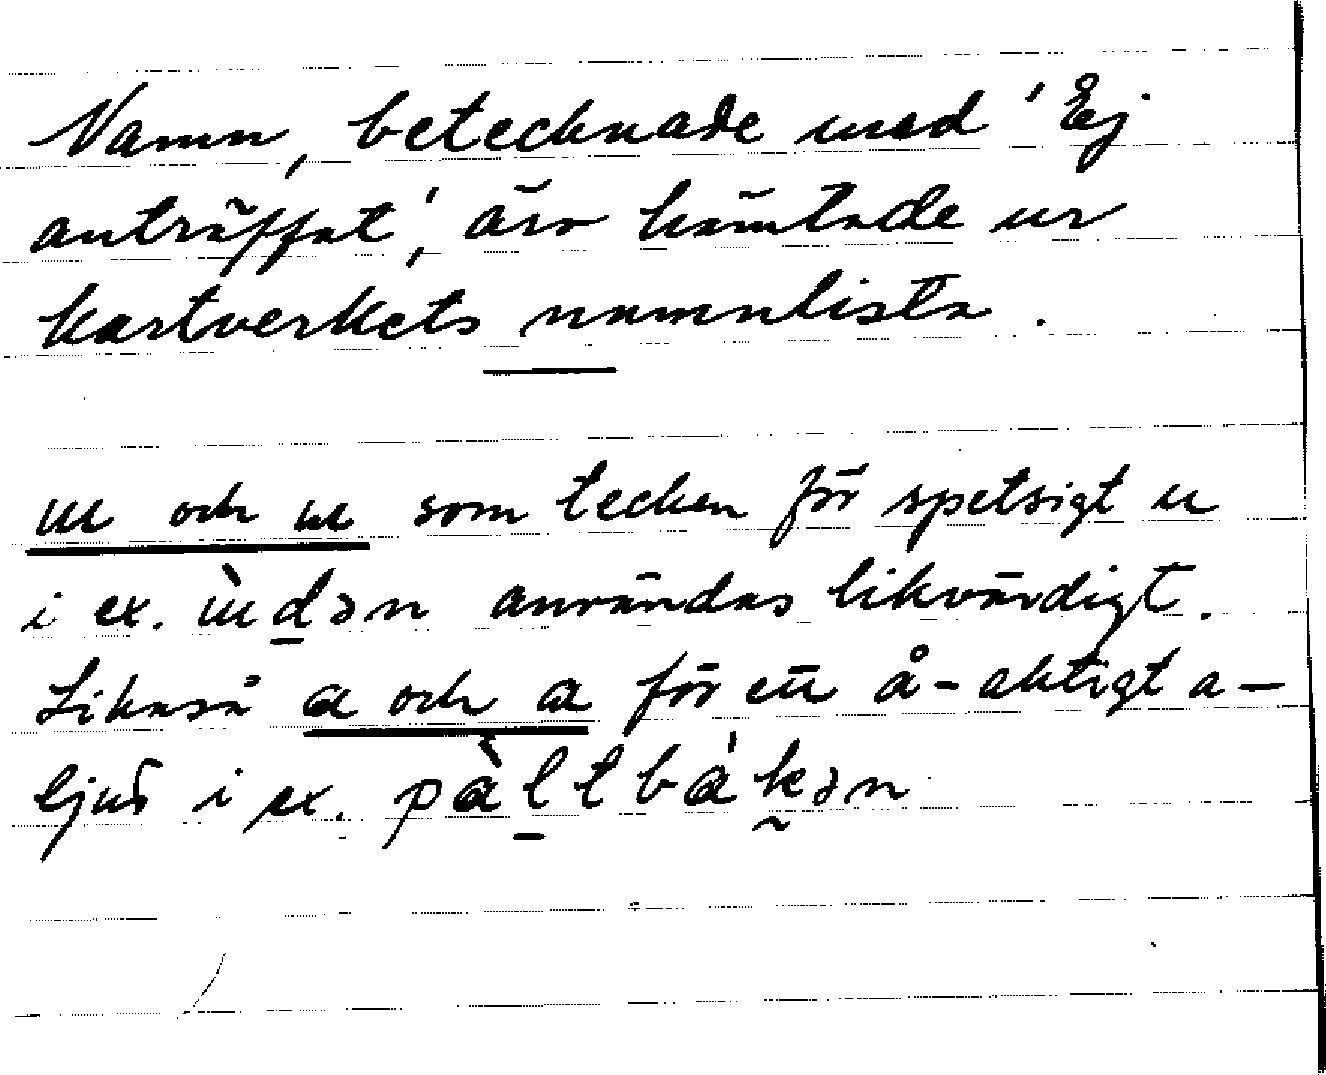 Namn, betecknade med 'Ej
anträffat', äro hämtade ur
kartverkets namnlista.
ɯ och ɯ som tecken för spetsigt u
i ex. ɯ̀d̲ən användas likvärdigt.
Likaså ɑ och ɑ för ett å-aktigt a-
ljud i ex. pɑ̀l̲tbɑ́k̰ən